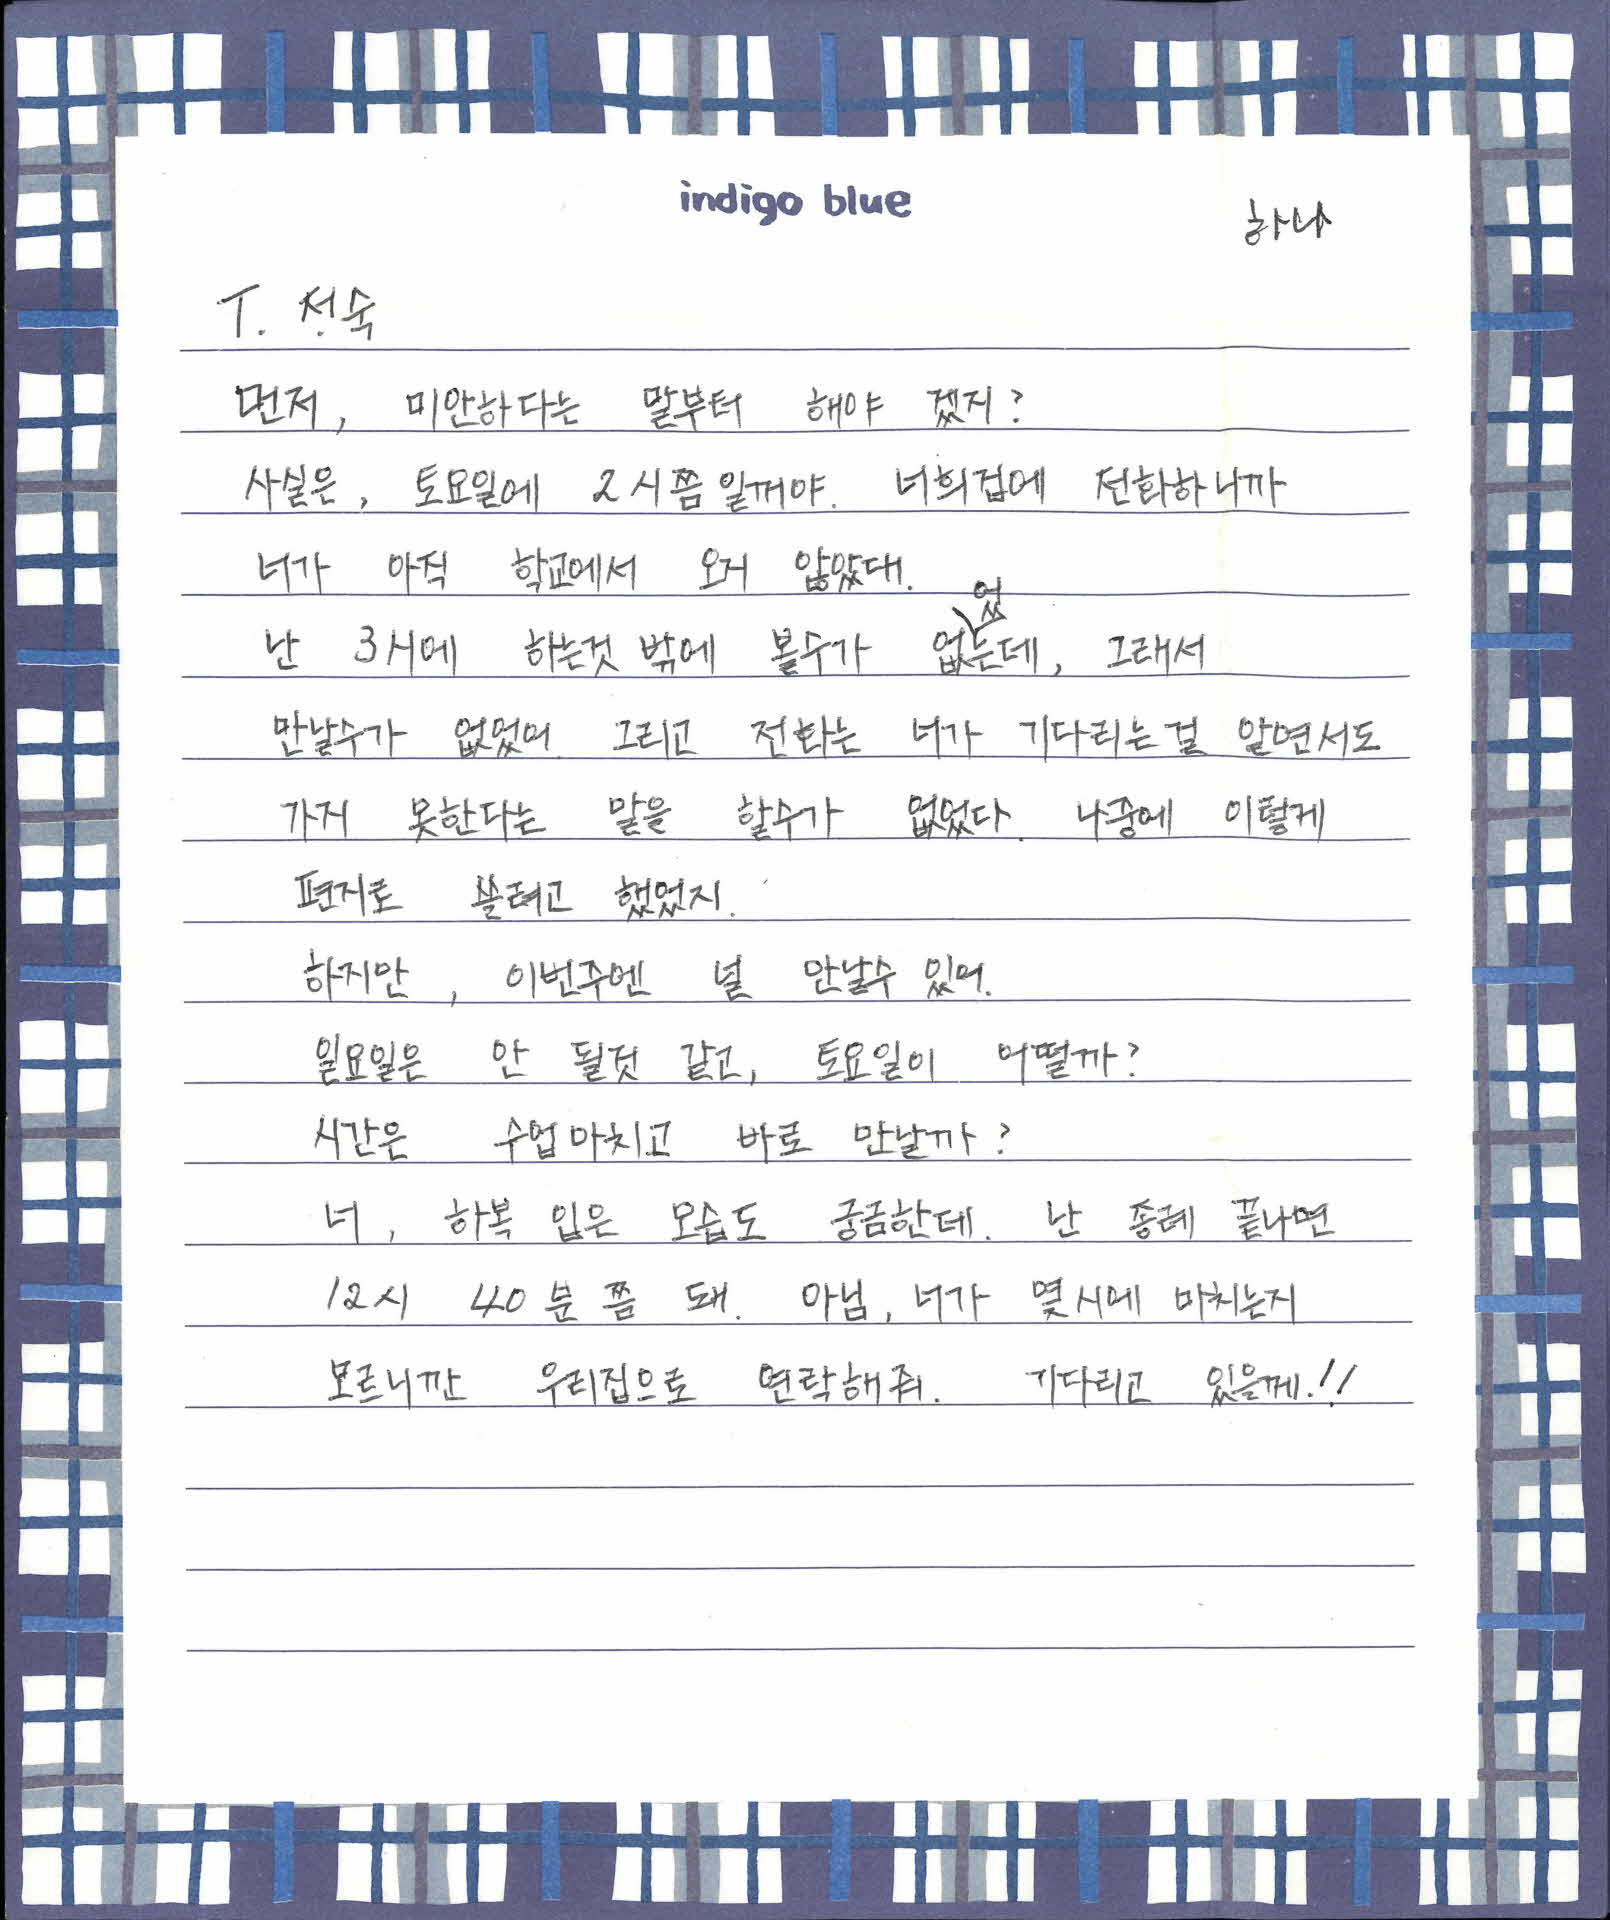 indigo blue
하나
T. 정숙
먼저, 미안하다는 말부터 해야 겠지?
사실은, 토요일에 2시쯤일꺼야. 너희집에 전화하니까
너가 아직 학교에서 오지 않았대.
난 3시에 하는것 밖에 볼수가 없었는데, 그래서
만날수가 없었어. 그리고 전화는 너가 기다리는걸 알면서도
가지 못한다는 말을 할수가 없었다. 나중에 이렇게
편지로 쓸려고 했었지.
하지만, 이번주엔 널 만날수 있어.
일요일은 안 될것 같고, 토요일이 어떨까?
시간은 수업마치고 바로 만날까?
너, 하복 입은 모습도 궁금한데. 난 종례 끝나면
12시 40분쯤 돼. 아님, 너가 몇시에 마치는지
모르니깐 우리집으로 연락해줘. 기다리고 있을께.!!